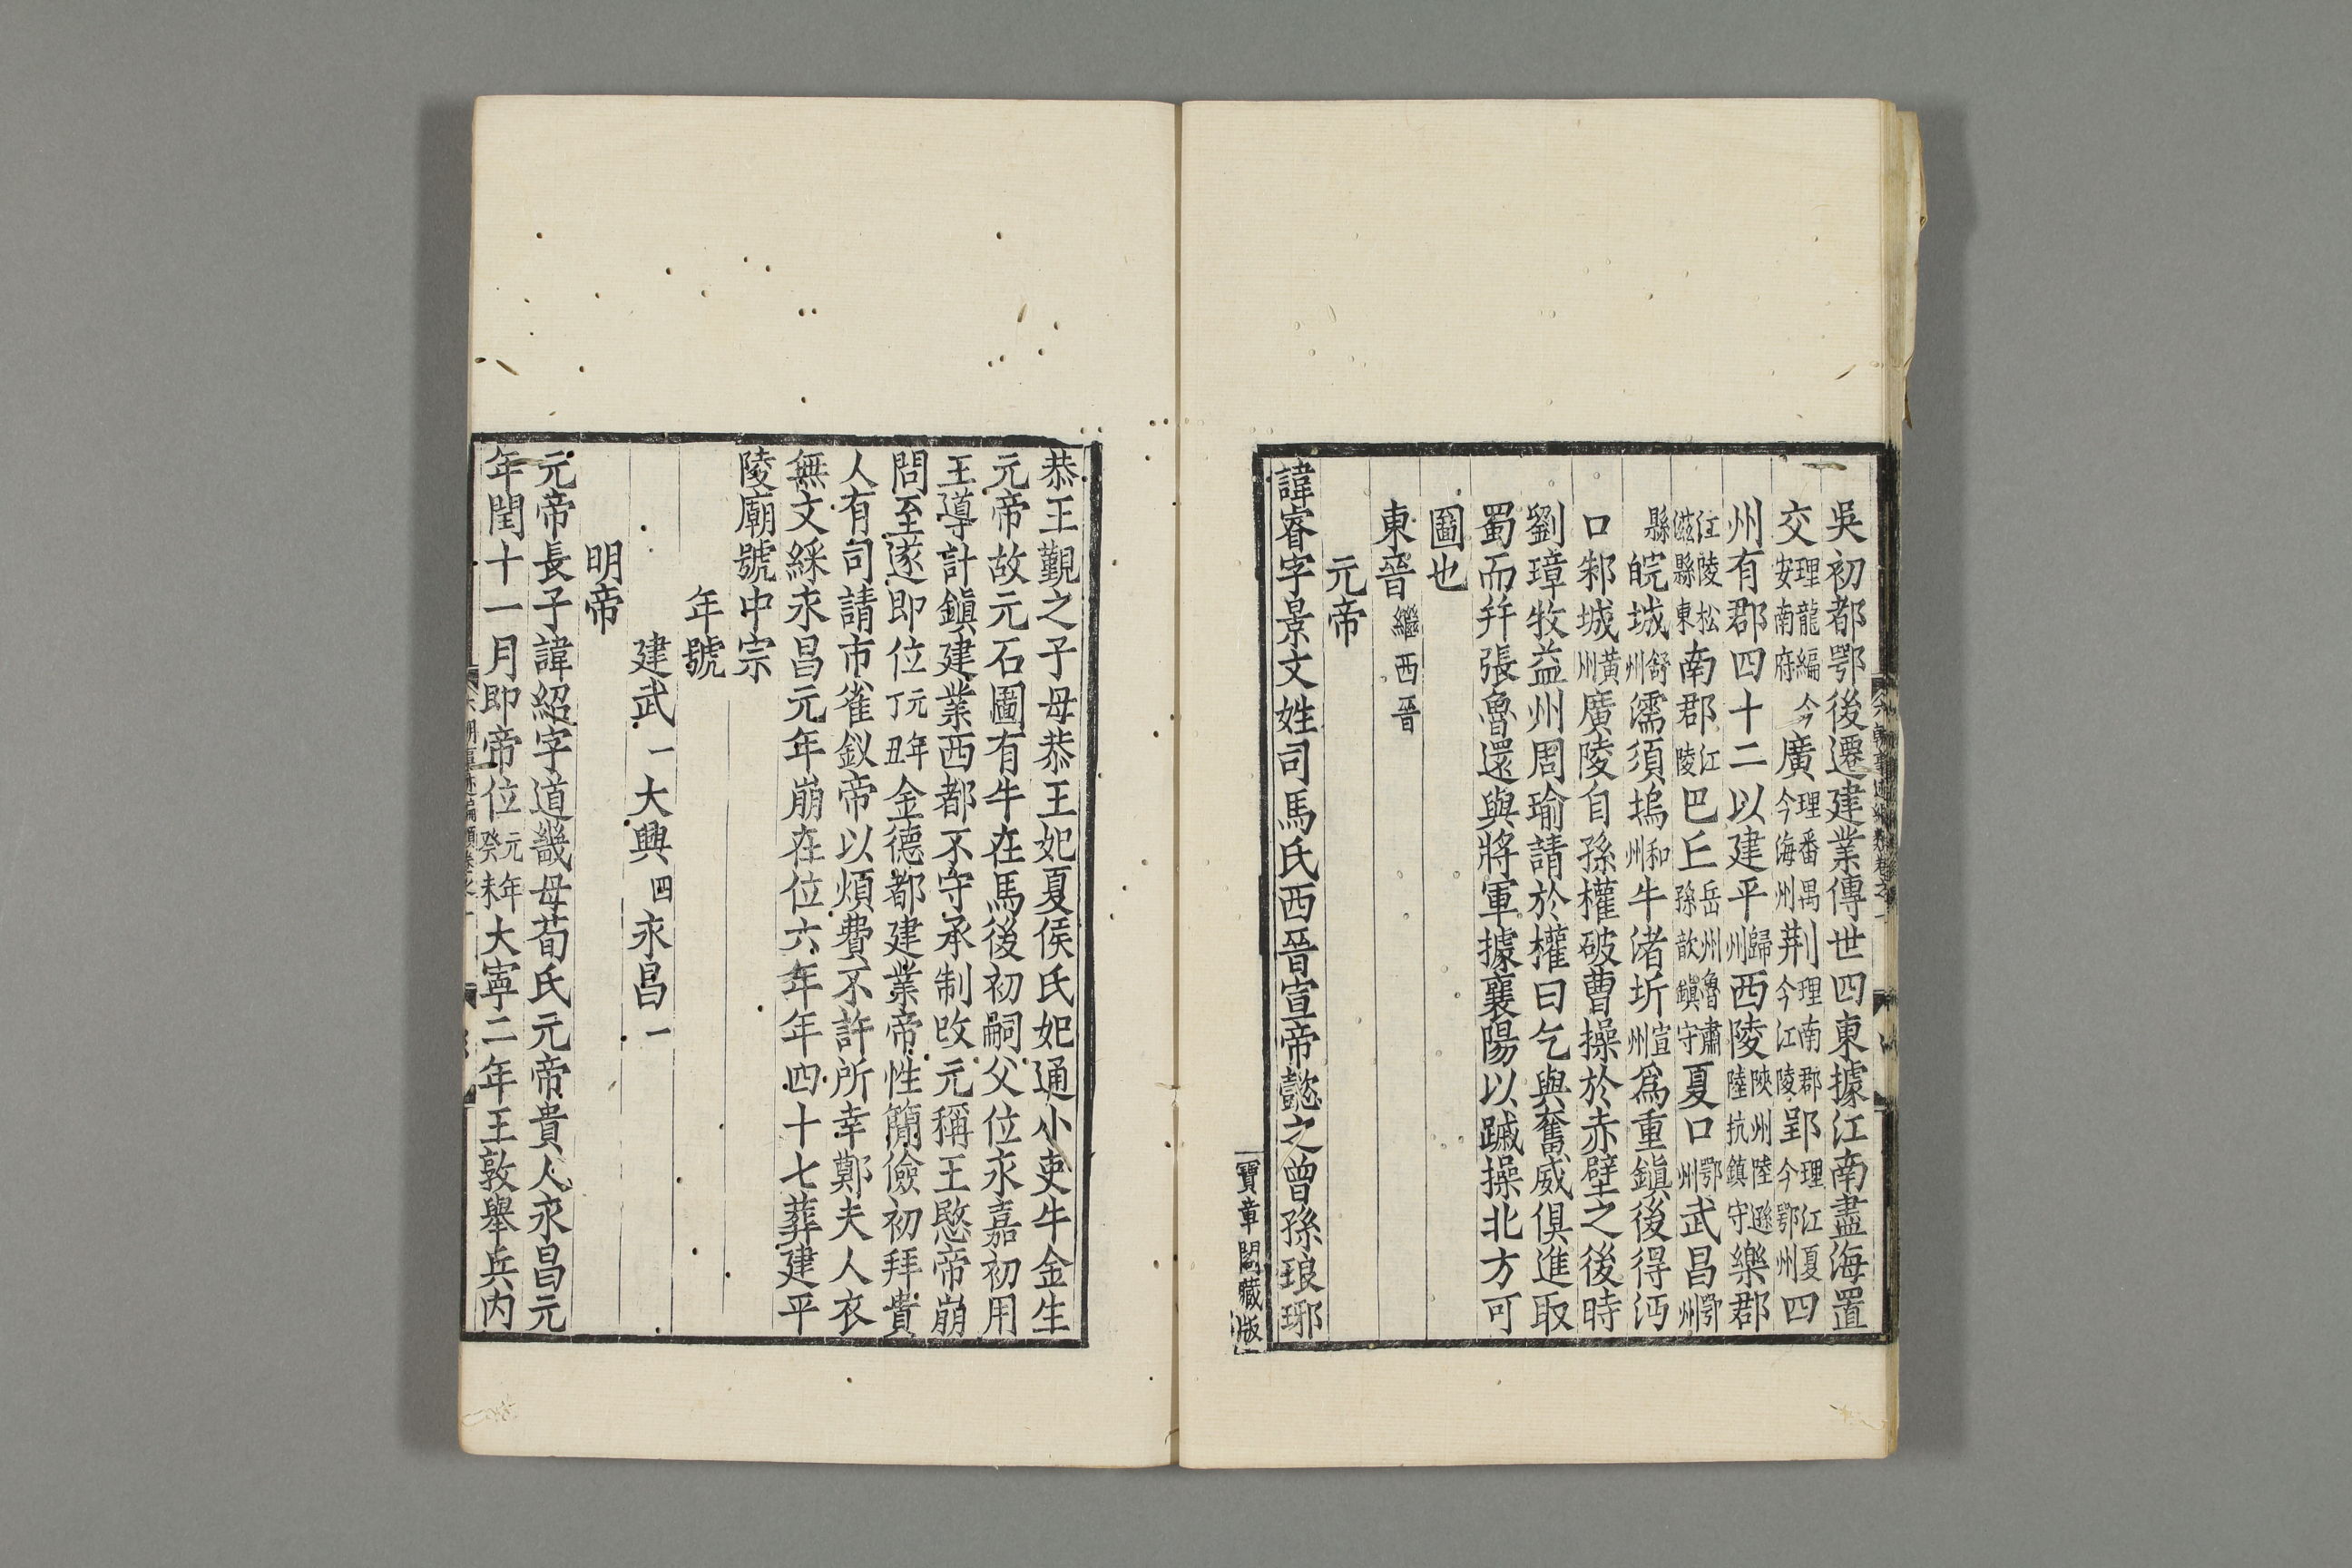 吳初都鄂後遷建業傳世四東據江南盡海置
交理龍編安南府今廣理番禺今海州荆理南郡今江陵郢理江夏今鄂州四
州有郡四十二以建平歸州西陵陝州陸遜陸抗鎮守樂郡
江陵松滋縣東縣南郡江陵巴丘岳州魯肅孫歆鎮守夏口鄂州武昌鄂州
皖城舒州濡須塢和州牛渚圻宣州爲重鎭後得沔
口邾城黃州廣陵自孫權破曹操於赤壁之後時
劉璋牧益州周瑜請於權曰乞與奮威俱進取
蜀而幷張魯還與將軍據襄陽以蹴操北方可
圖也
東晉繼西晉
元帝
諱睿字景文姓司馬氏西晉宣帝懿之曾孫琅琊
寶章閣藏版
恭王覲之子母恭王妃夏侯氏妃通小吏牛金生
元帝故元石圖有牛在馬後初嗣父位永嘉初用
王導計鎭建業西都不守承制改元稱王愍帝崩
問至遂即位元年丁丑金德都建業帝性簡儉初拜貴
人有司請市雀釵帝以煩費不許所幸鄭夫人衣
無文綵永昌元年崩在位六年年四十七葬建平
陵廟號中宗
年號
建武一大興四永昌一
明帝
元帝長子諱紹字道畿母荀氏元帝貴人永昌元
年閏十一月即帝位元年癸未大寧二年王敦舉兵內